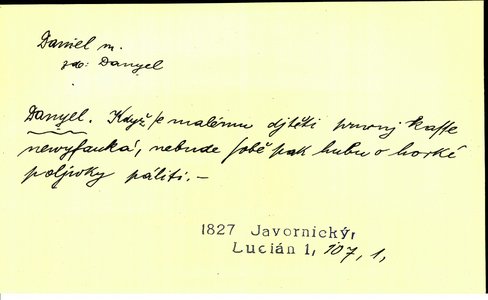 Daniel m.
zdo: Danyel
Danyel. Když se malému djtěti prwnj kasse
newyfauká, nebude sobě pak hubu o horké
poljwky páliti. —
1827 Javornický,
Lucián 1, 107, 1,